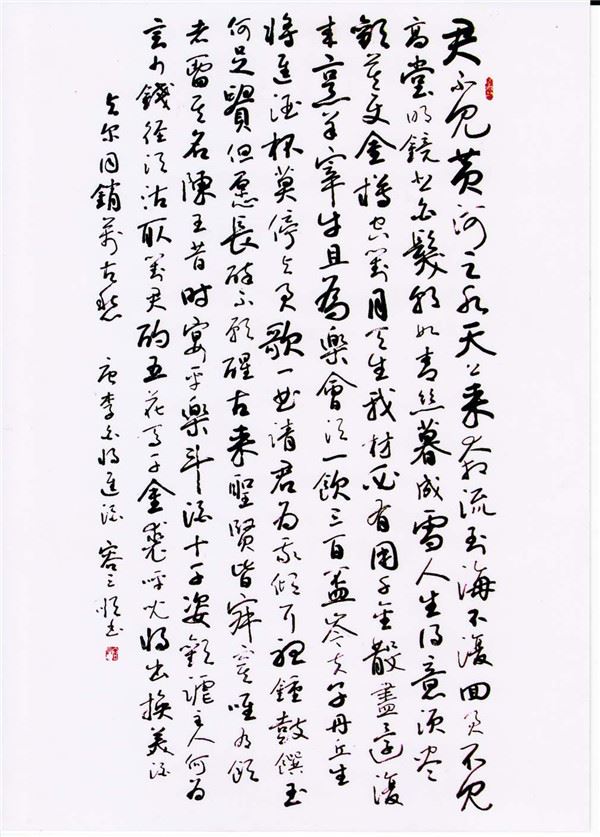 君不見黄河之水天上来奔流到海不復回君不見
高堂明鏡悲白髮朝如青丝暮成雪人生得意须尽
歡莫使金樽空對月天生我材必有用千金散盡還復
来烹羊宰牛且為樂會須一飲三百盃岑夫子丹丘生
將進酒杯莫停与君歌一曲請君为我傾耳聽鍾鼓饌玉
何足貴但愿長醉不願醒古来聖賢皆寂寞唯有飲
者留其名陳王昔時宴平樂斗酒十千恣歡謔主人何为
言少錢徑須沽取對君酌五花馬千金裘呼兒將出換美酒
与尔同銷萬古愁 唐李白將進酒